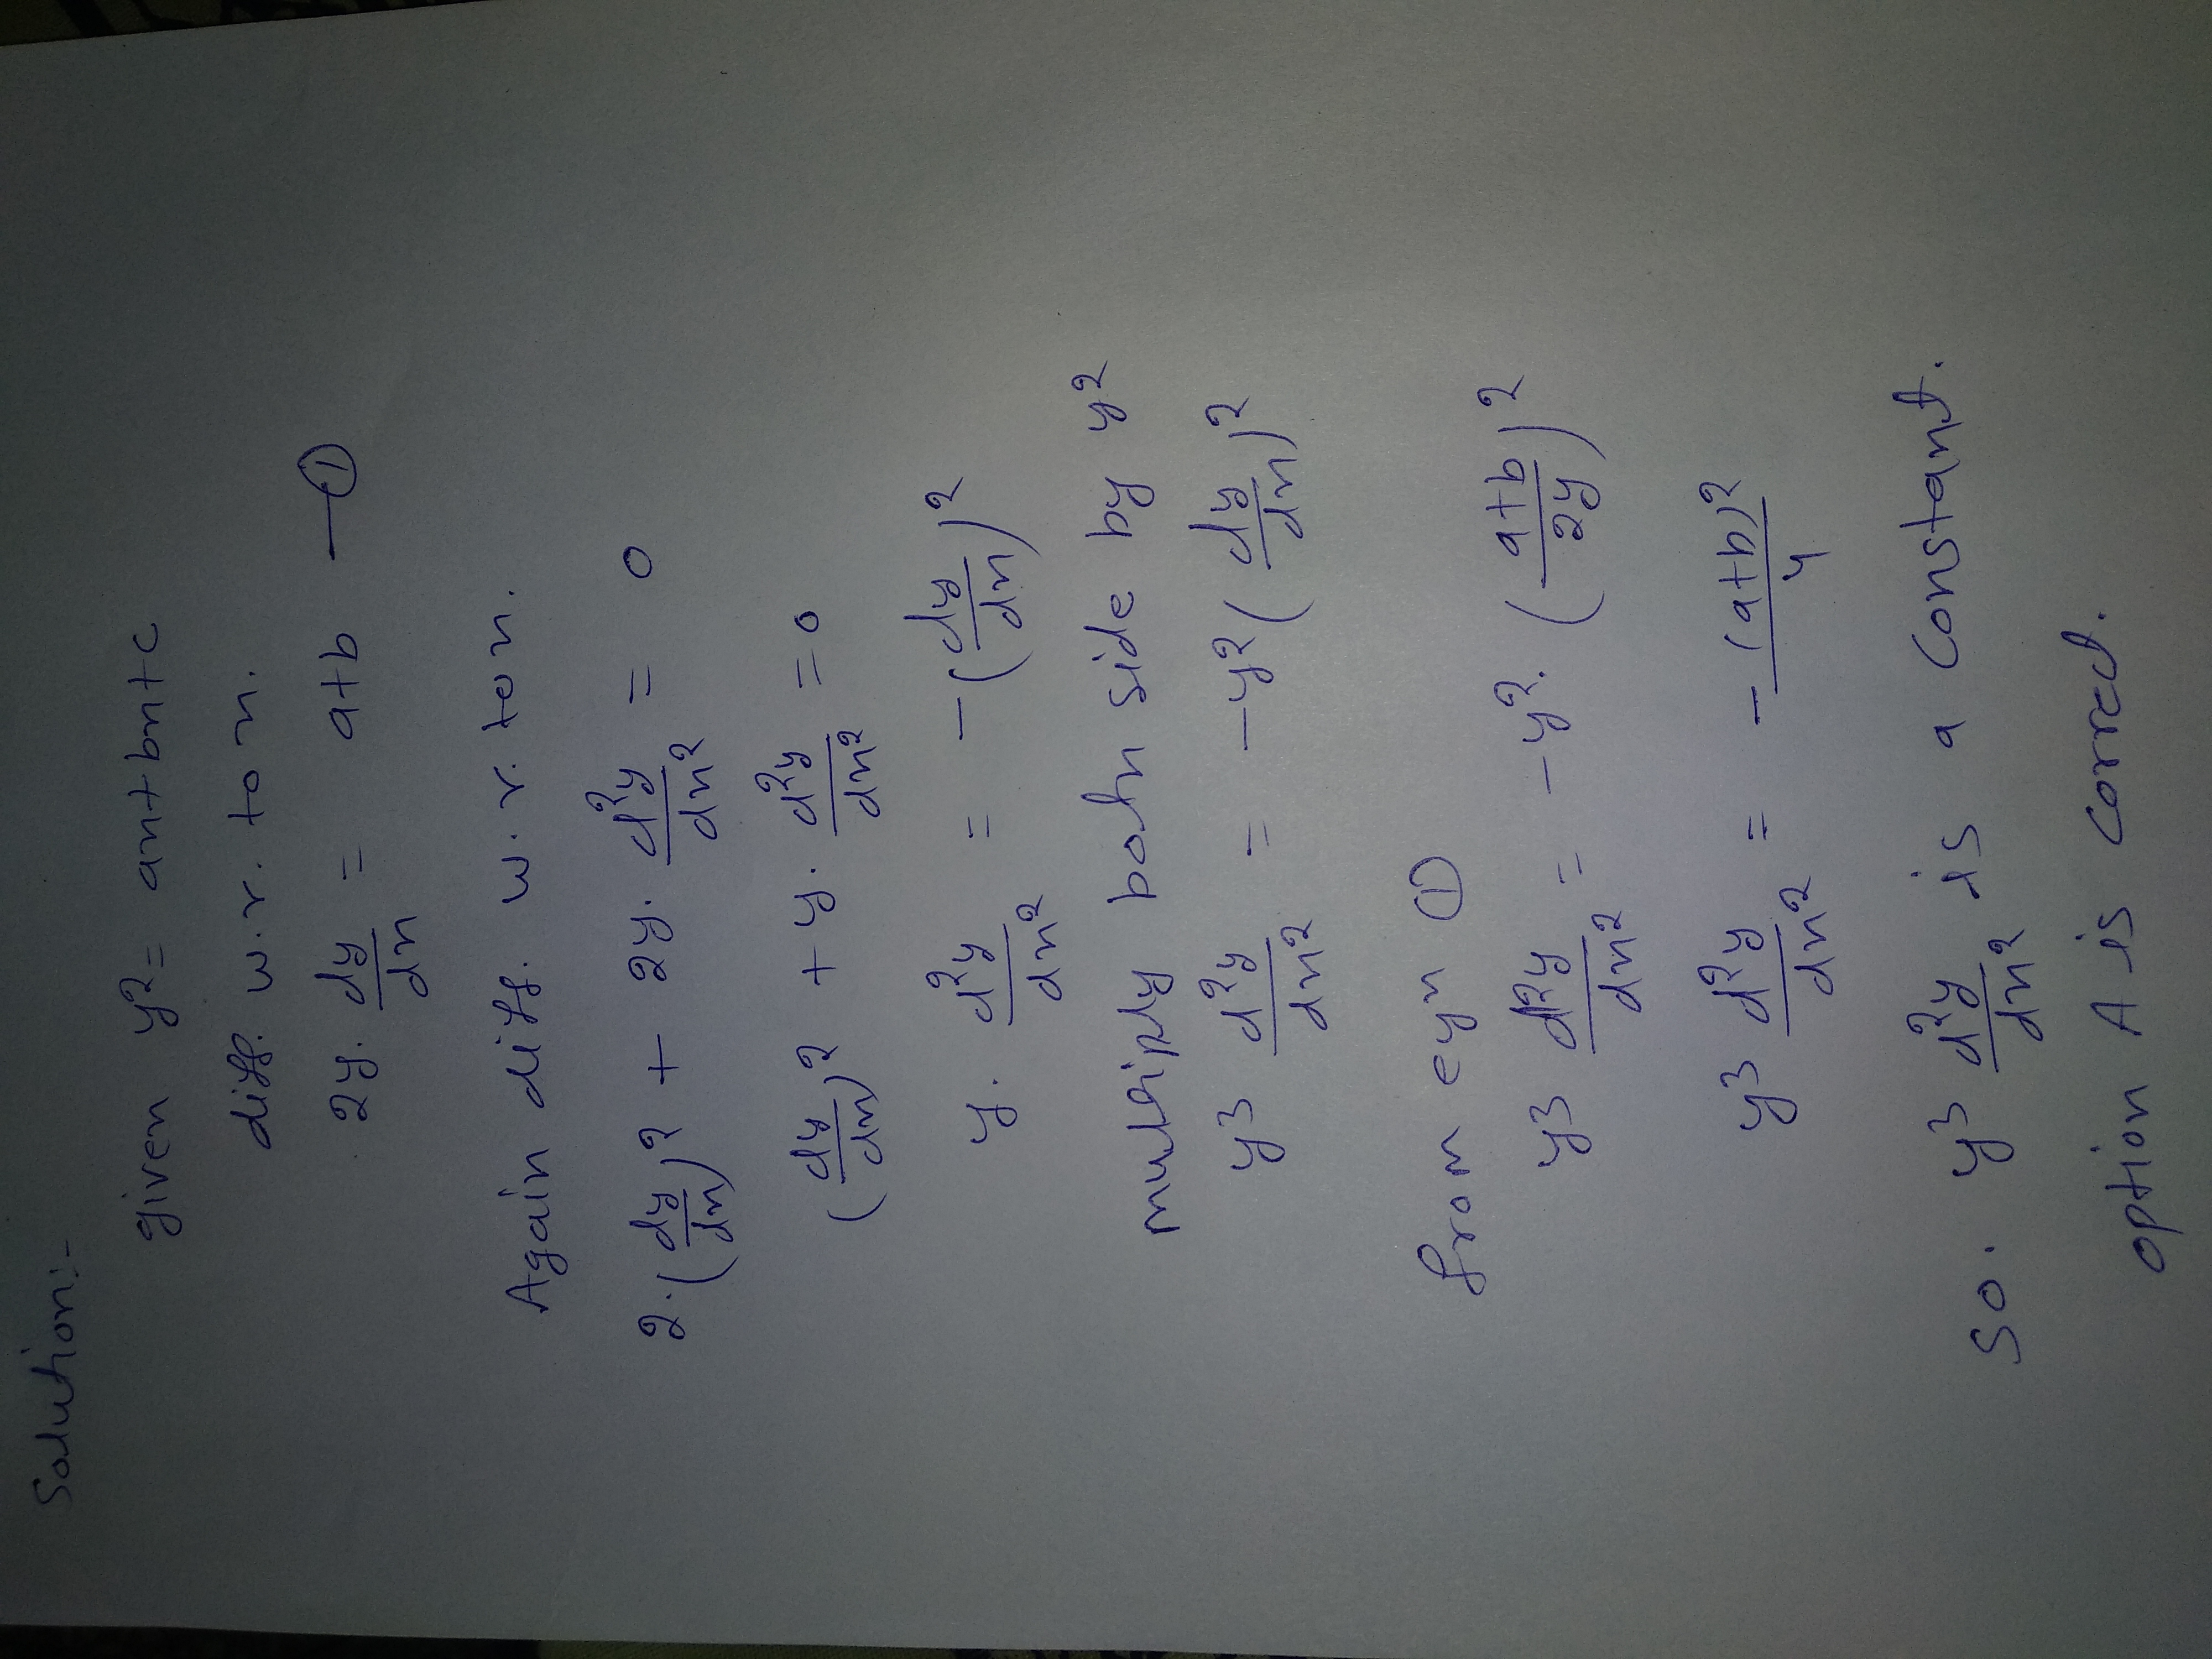 Solution:-
given y² = an+bn+c
diff. w.r. to n.
2y. dy/dn = a+b —①
Again diff. w.r. to n.
2.(dy/dn)² + 2y. d²y/dn² = 0
(dy/dn)² + y. d²y/dn² = 0
y. d²y/dn² = -(dy/dn)²
multiply both side by y²
y³ d²y/dn² = -y² (dy/dn)²
from eqn ①
y³ d²y/dn² = -y². (a+b/2y)²
y³ d²y/dn² = -(a+b)²/4
so. y³ d²y/dn² is a constant.
option A is correct.